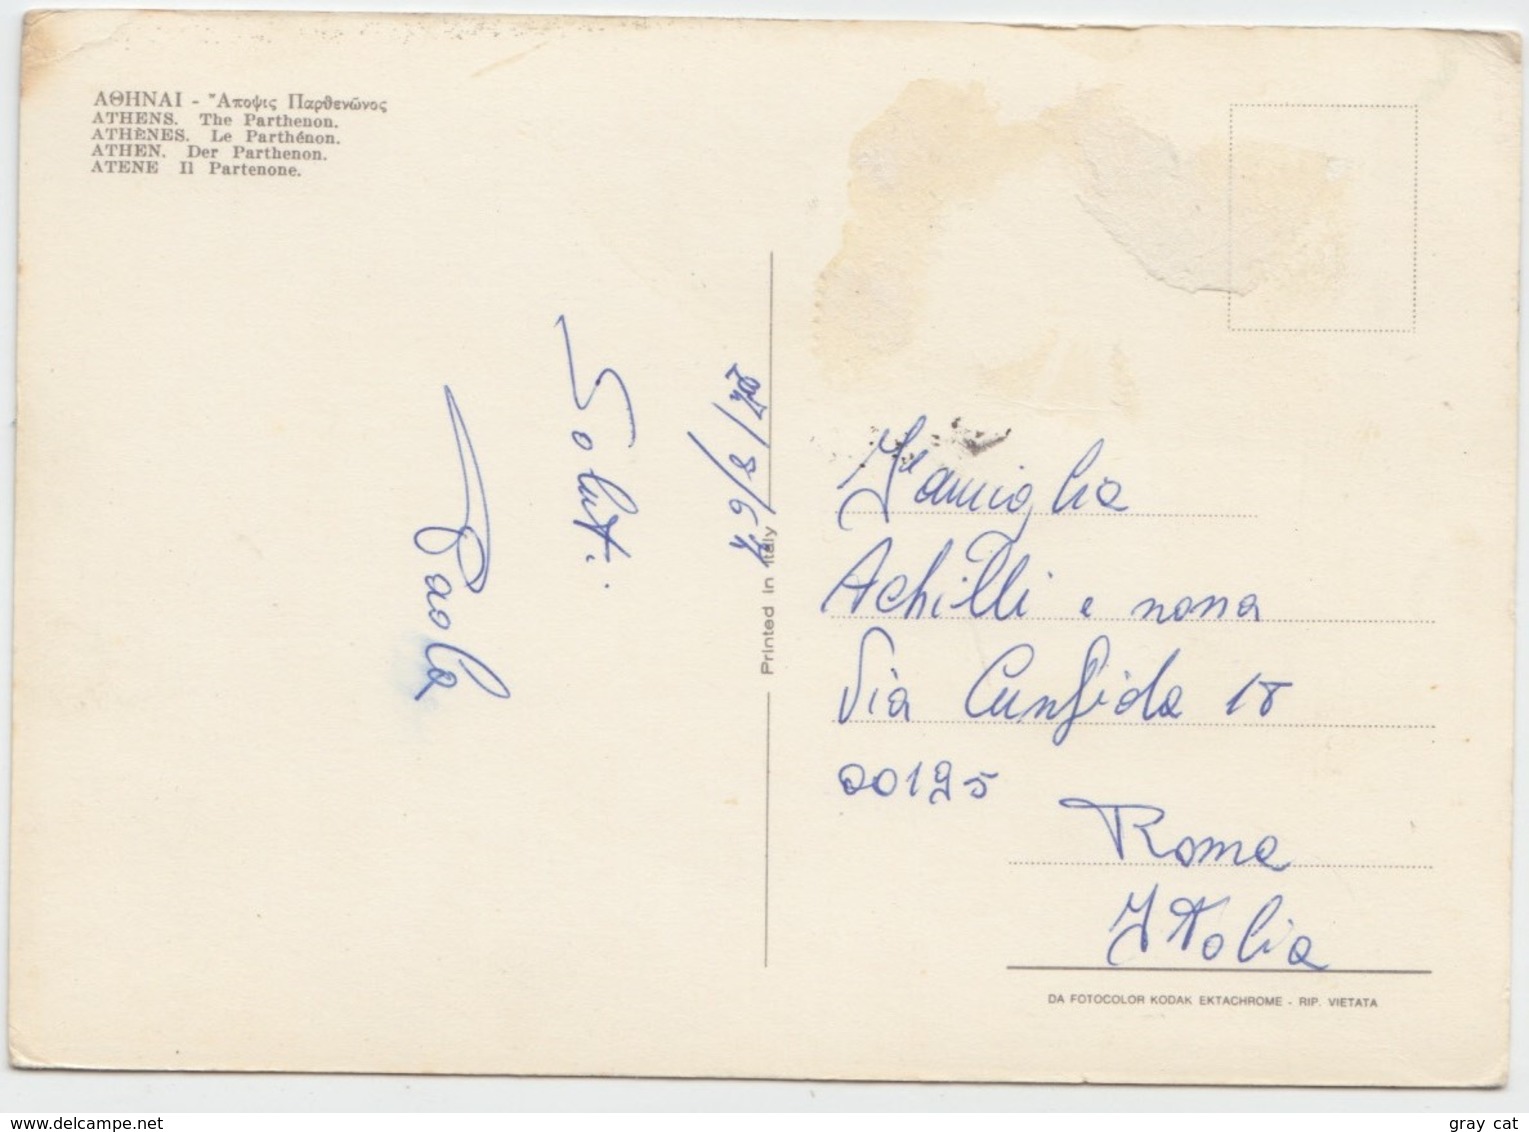 ΑΘΗΝΑΙ - Ἄποψις Παρθενῶνος
ATHENS. The Parthenon.
ATHÈNES. Le Parthénon.
ATHEN. Der Parthenon.
ATENE Il Partenone.
Saluti.
Paola
Printed in Italy
Famiglia
Achilli e nonna
Via Cunfida 18
00195
Roma
Italia
DA FOTOCOLOR KODAK EKTACHROME - RIP. VIETATA
delcampe.net
gray cat